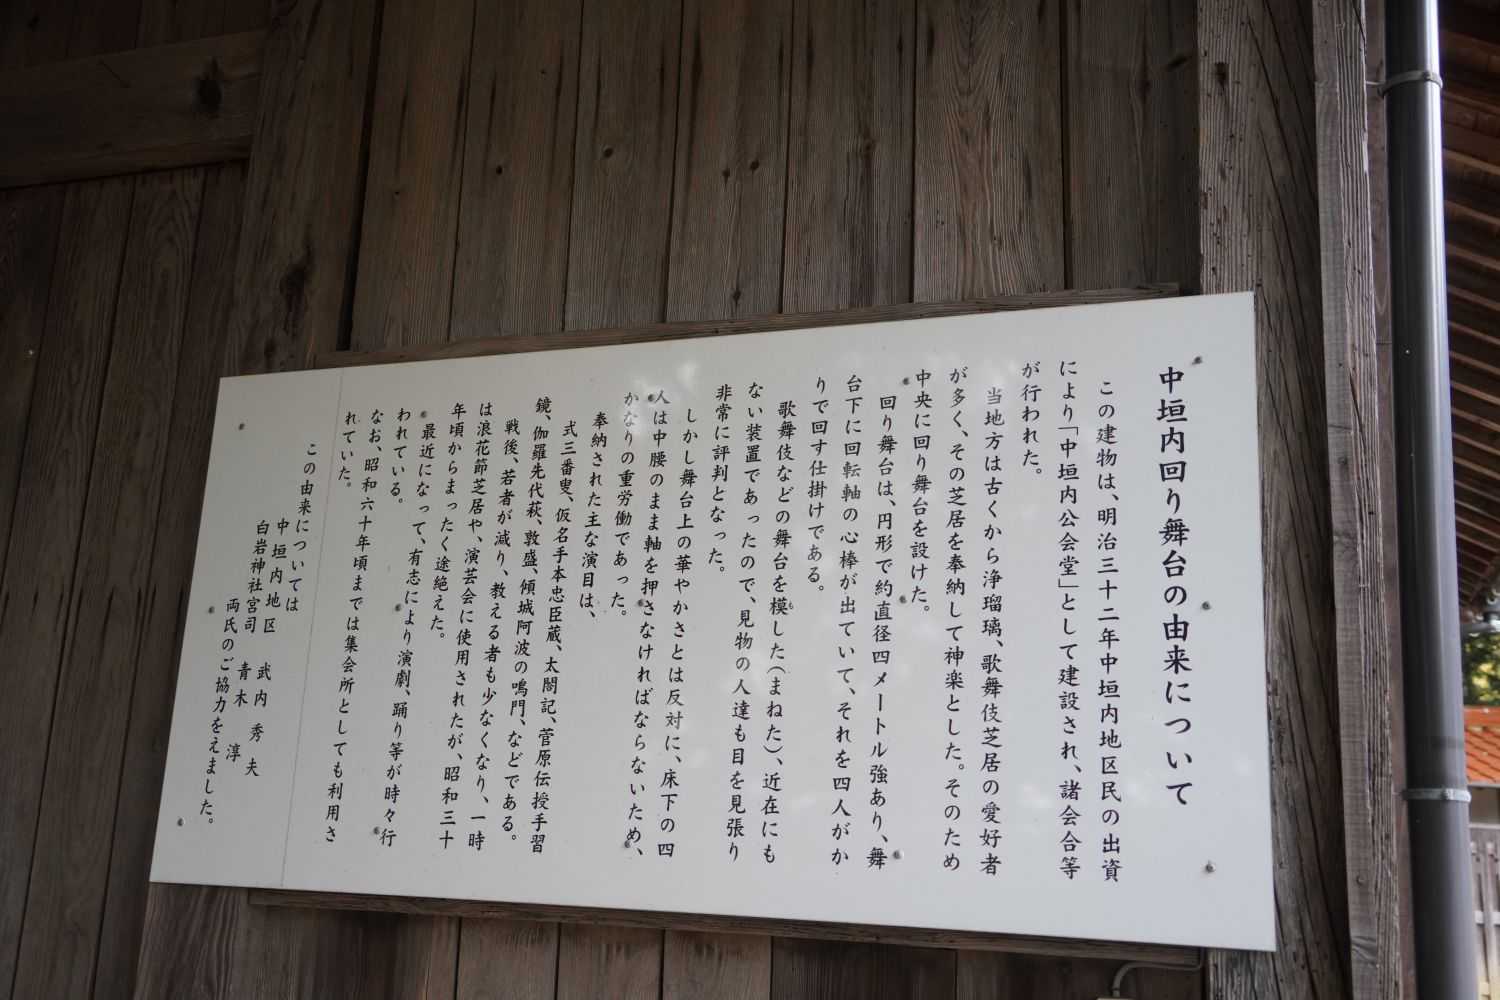 中垣内回り舞台の由来について
この建物は、明治三十二年中垣内地区民の出資
により「中垣内公会堂」として建設され、諸会合等
が行われた。
当地方は古くから浄瑠璃、歌舞伎芝居の愛好者
が多く、その芝居を奉納して神楽とした。そのため
中央に回り舞台を設けた。
回り舞台は、円形で約直径四メートル強あり、舞
台下に回転軸の心棒が出ていて、それを四人がか
りで回す仕掛けである。
歌舞伎などの舞台を模した(まねた)、近在にも
ない装置であったので、見物の人達も目を見張り
非常に評判となった。
しかし舞台上の華やかさとは反対に、床下の四
人は中腰のまま軸を押さなければならないため、
かなりの重労働であった。
奉納された主な演目は、
式三番叟、仮名手本忠臣蔵、太閤記、菅原伝授手習
鏡、伽羅先代萩、敦盛、傾城阿波の鳴門、などである。
戦後、若者が減り、教える者も少なくなり、一時
は浪花節芝居や、演芸会に使用されたが、昭和三十
年頃からまったく途絶えた。
最近になって、有志により演劇、踊り等が時々行
われている。
なお、昭和六十年頃までは集会所としても利用さ
れていた。
この由来については
中垣内地区 武内秀夫
白岩神社宮司 青木淳
両氏のご協力をえました。